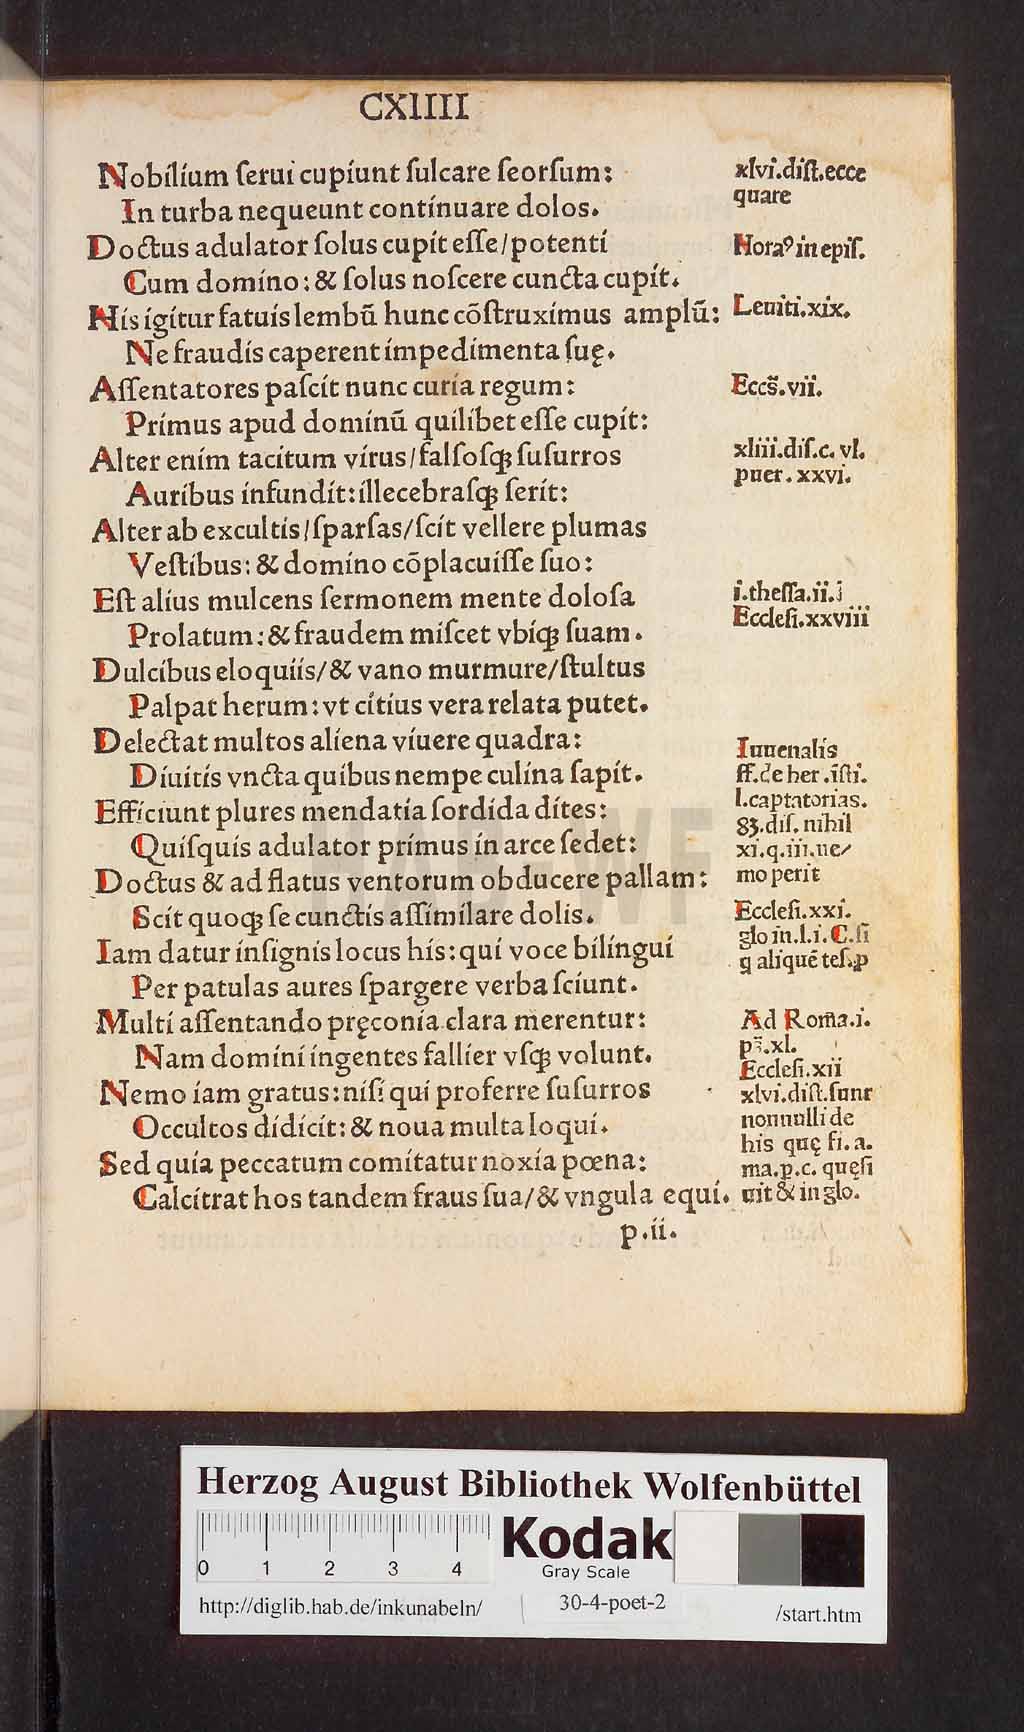 CXIIII
Nobilium ſerui cupiunt ſulcare ſeorſum:
In turba nequeunt continuare dolos.
Doctus adulator ſolus cupit eſſe/potenti
Cum domino: & ſolus noſcere cuncta cupit.
His igitur fatuis lembū hunc cōſtruximus amplū:
Ne fraudis caperent impedimenta ſuę.
Aſſentatores paſcit nunc curia regum:
Primus apud dominū quilibet eſſe cupit:
Alter enim tacitum virus/falſoſqꝫ ſuſurros
Auribus infundit: illecebraſqꝫ ſerit:
Alter ab excultis/ſparſas/ſcit vellere plumas
Veſtibus: & domino cōplacuiſſe ſuo:
Eſt alius mulcens ſermonem mente doloſa
Prolatum: & fraudem miſcet vbiqꝫ ſuam.
Dulcibus eloquiis/& vano murmure/ſtultus
Palpat herum: vt citius vera relata putet.
Delectat multos aliena viuere quadra:
Diuitis vncta quibus nempe culina ſapit.
Efficiunt plures mendatia ſordida dites:
Quiſquis adulator primus in arce ſedet:
Doctus & ad flatus ventorum obducere pallam:
Scit quoqꝫ ſe cunctis aſſimilare dolis.
Iam datur inſignis locus his: qui voce bilingui
Per patulas aures ſpargere verba ſciunt.
Multi aſſentando pręconia clara merentur:
Nam domini ingentes fallier vſqꝫ volunt.
Nemo iam gratus: niſi qui proferre ſuſurros
Occultos didicit: & noua multa loqui.
Sed quia peccatum comitatur noxia pœna:
Calcitrat hos tandem fraus ſua/& vngula equi.
p.ii.
xlvi.diſt.ecce
quare
Horaꝰ in epiſ.
Leuiti.xix.
Eccs̄.vii.
xliii.diſ.c. vl.
puer. xxvi.
i.theſſa.ii.i
Eccleſi.xxviii
Iuuenalis
ff.de her.īſti.
l.captatorias.
83.diſ. nihil
xi.q.iii.ne/
mo perit
Eccleſi.xxi.
glo in.l.i.C.ſi
q aliquē teſ.p
Ad Roma.i.
ps̄.xl.
Eccleſi.xii
xlvi.diſt.ſunt
nonnulli de
his quę fi. a.
ma.p.c. quęſi
uit & in glo.
HAB-WF
Herzog August Bibliothek Wolfenbüttel
0 1 2 3 4
Kodak
Gray Scale
http://diglib.hab.de/inkunabeln/
30-4-poet-2
/start.htm